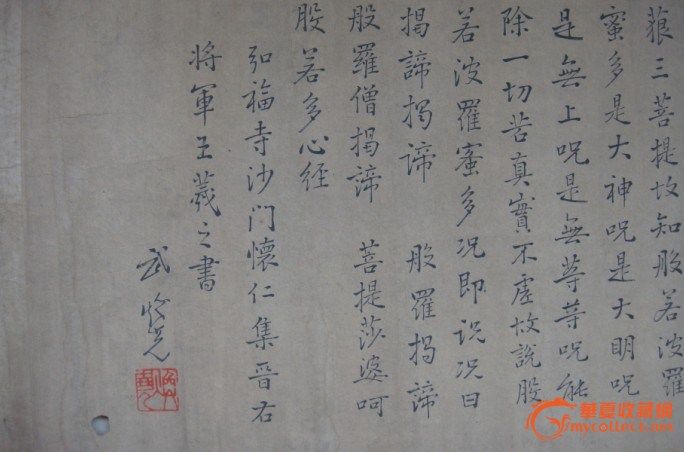 藐三菩提故知般若波羅
蜜多是大神咒是大明咒
是無上咒是無等等咒能
除一切苦真實不虛故說般
若波羅蜜多咒即說咒曰
揭諦揭諦 般羅揭諦
般羅僧揭諦 菩提莎婆呵
般若多心經
弘福寺沙門懷仁集晉右
將軍王羲之書
武
華夏收藏網
mycollect.net